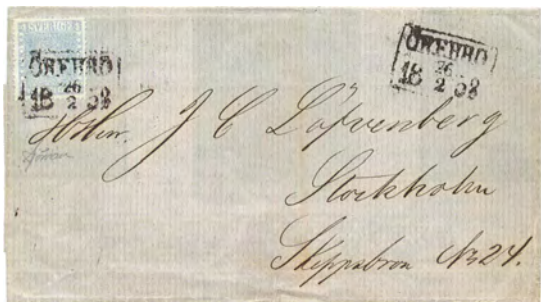 SVERIGE
ÖREBRO
26
18 2 58
ÖREBRO
26
18 2 58
J C Löfvenberg
Stockholm
Skeppsbron No 24.